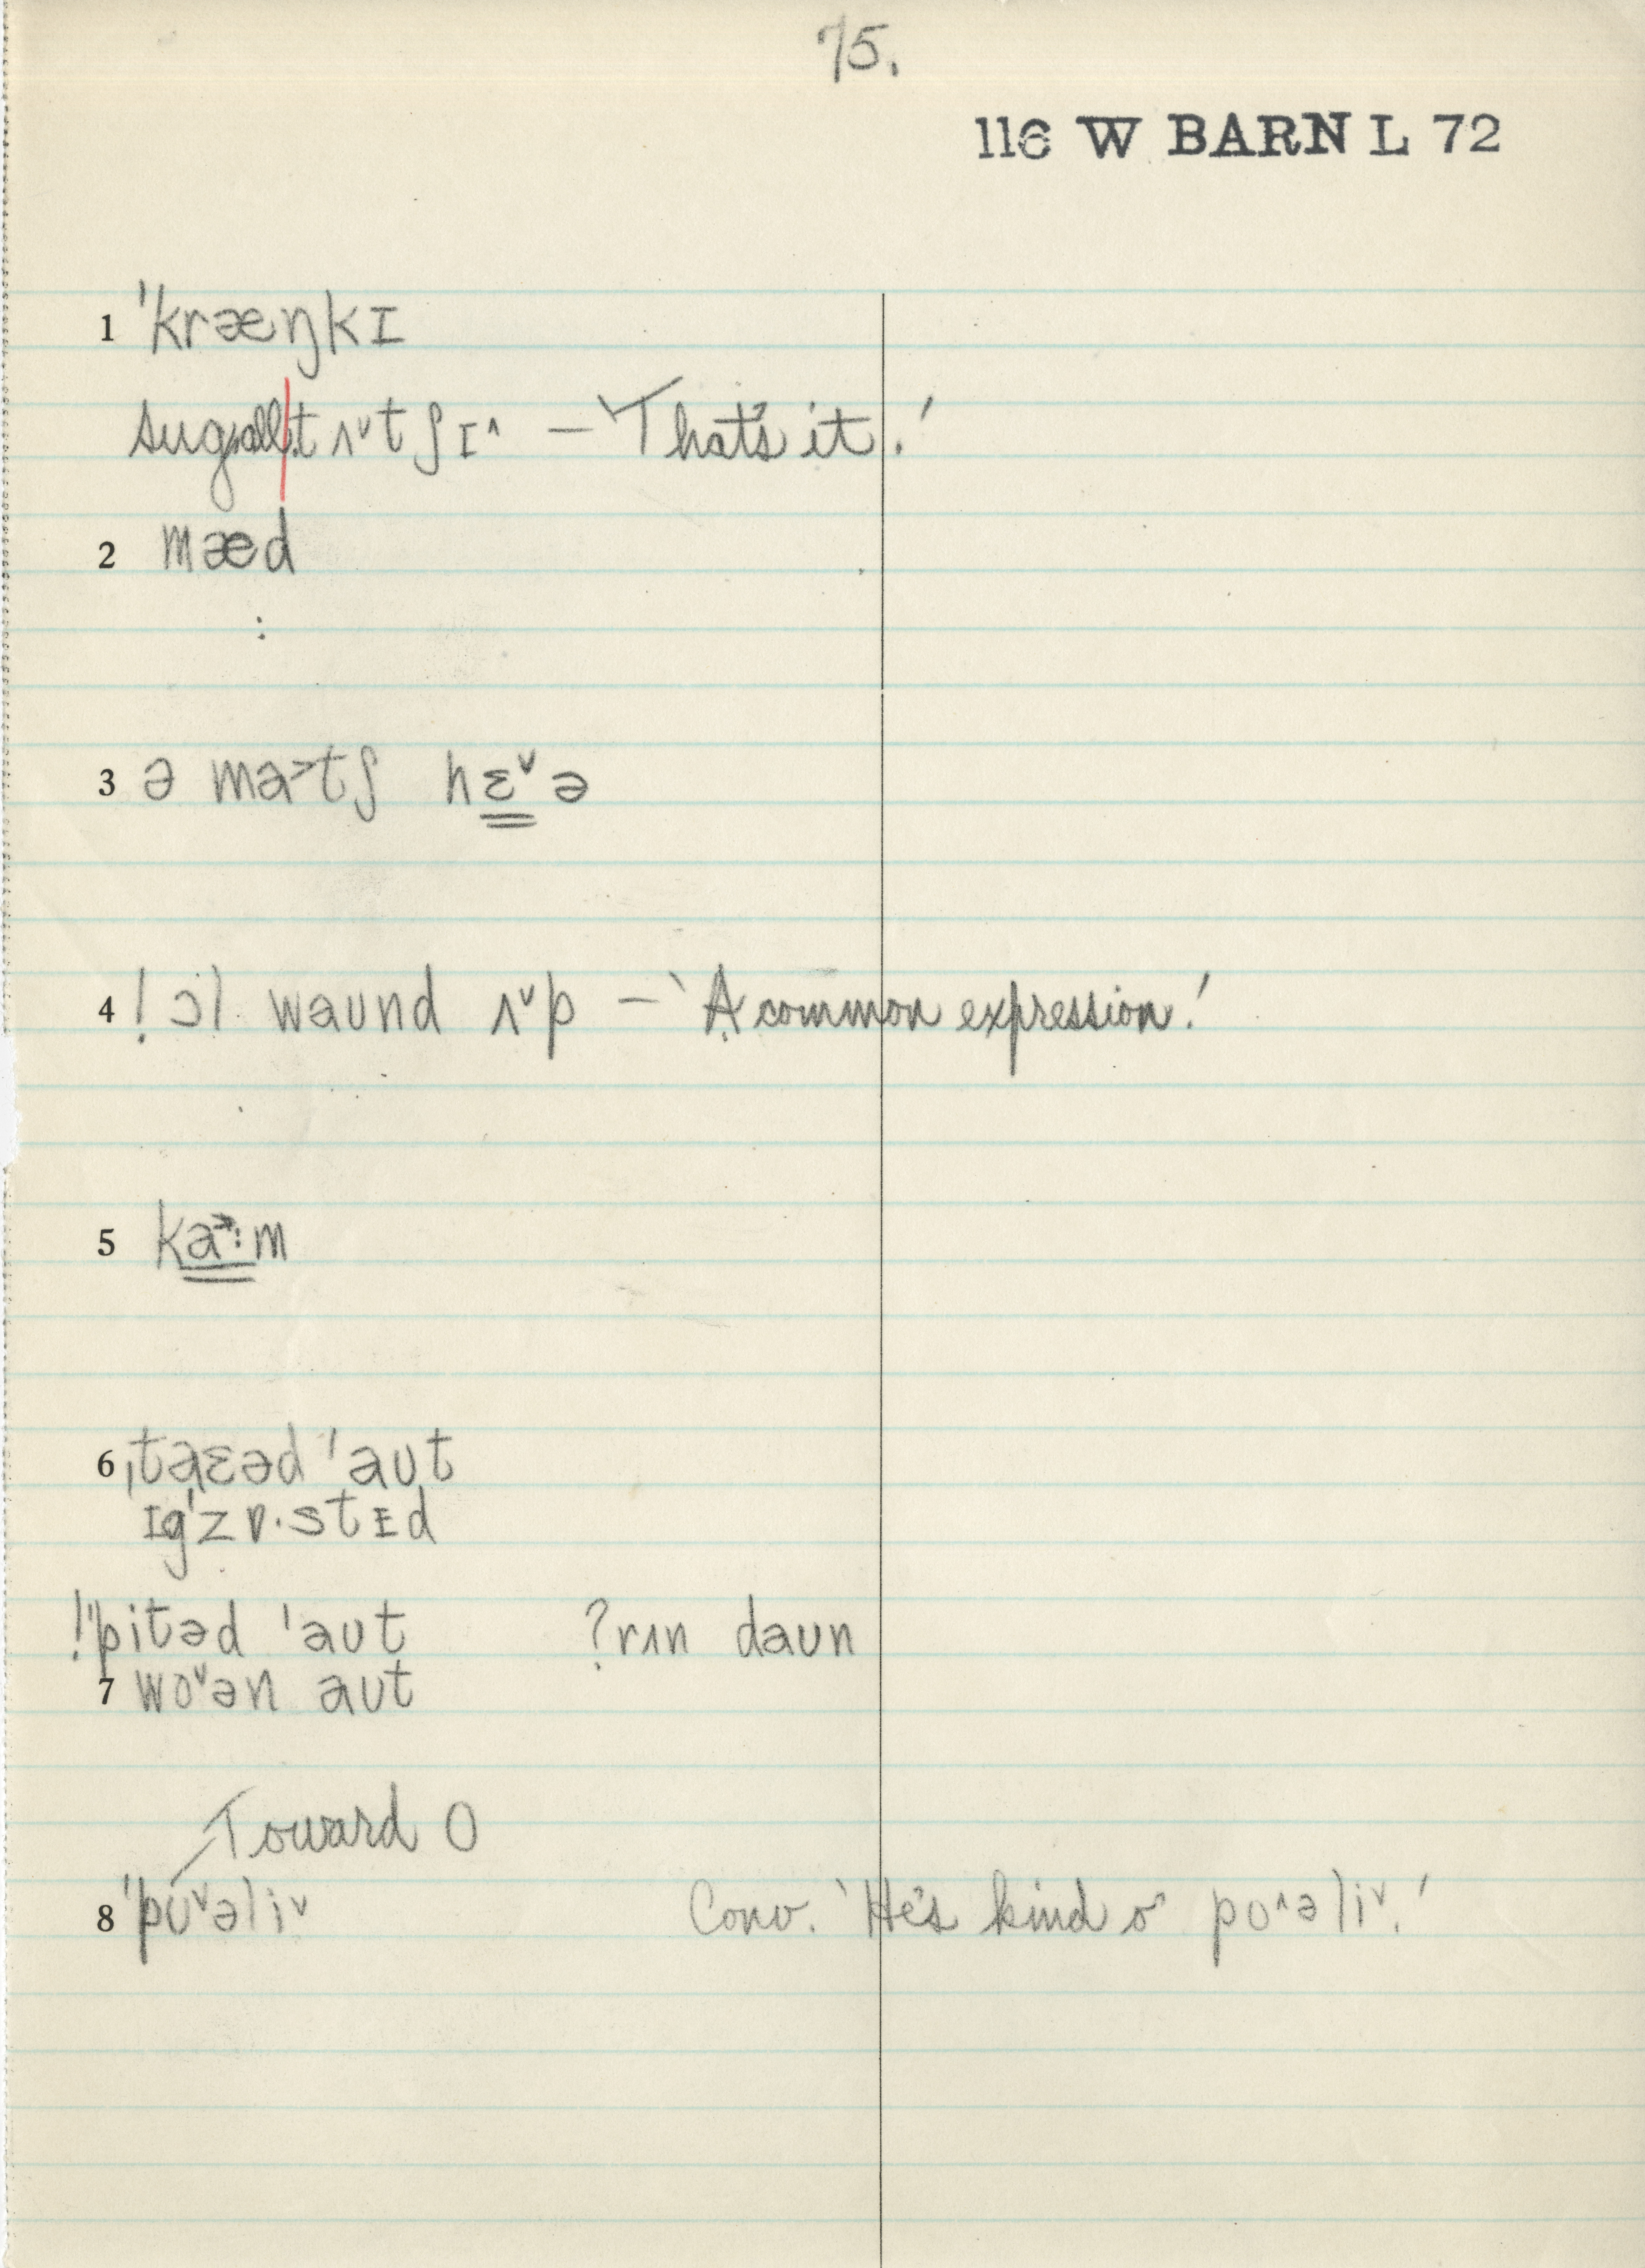 75.
116 W BARN L 72
1 ˈkræŋkɪ
sug. all. tʌ˅tʃɪ˄ – 'That's it.'
2 mæd
:
3 ə ma>tʃ hɛ˅ə
4 ! ɔl waund ʌ˅p – 'A common expression.'
5 ka→:m
6 ˌtaɛəd ˈaut
ɪgˈzɒ·stɪd
!ˈpitəd ˈaut ?rʌn daun
7 wo˅ən aut
Toward o
8 ˈpʊ˅əli˅ Conv. 'He's kind o' po˄əli˅.'